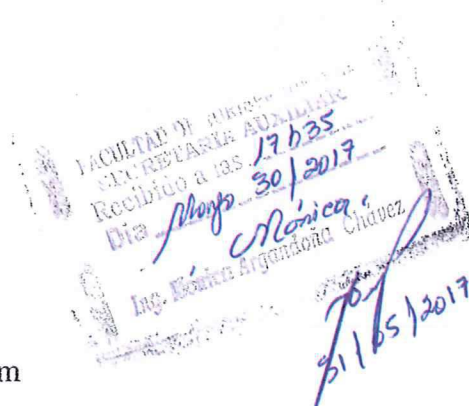 FACULTAD DE
SECRETARIA AUXILIAR
Recibido a las 17h35
Dia Mayo 30/2017
Mónica.
Ing. Mónica Argandoña Chávez
31/05/2017
m